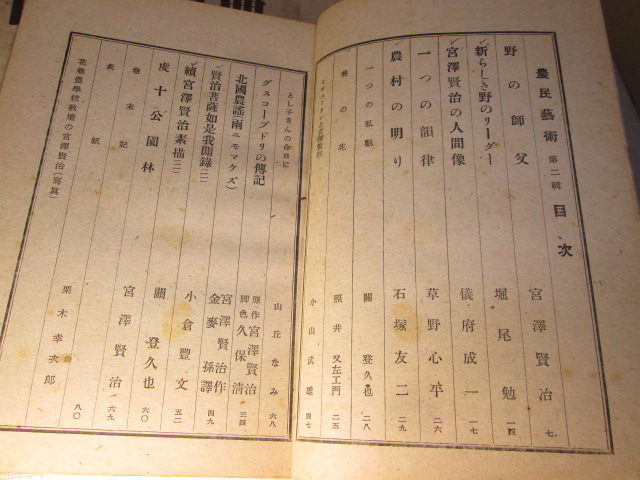 農民藝術 第二輯 目次
野の師父 宮澤賢治 七
新らしき野のリーダー 堀尾勉 一四
宮澤賢治の人間像 儀府成一 一七
一つの韻律 草野心平 二六
農村の明り 石塚友二 二九
一つの私観 關登久也 二八
葱の花 照井又左エ門 二五
小山武雄 四七
とし子さんの命日に 山丘なみ 六八
グスコーブドリの傳記 原作 宮澤賢治 脚色 久保清 三四
北國農謠 雨ニモマケズ) 宮澤賢治作 金麥孫譯 四九
賢治菩薩如是我聞錄(二) 小倉豐文 五二
續宮澤賢治素描(二) 關登久也 六〇
虔十公園林 宮澤賢治 六九
卷末記 八〇
表紙 栗木幸次郎
花卷農學校教壇の宮澤賢治(寫眞)